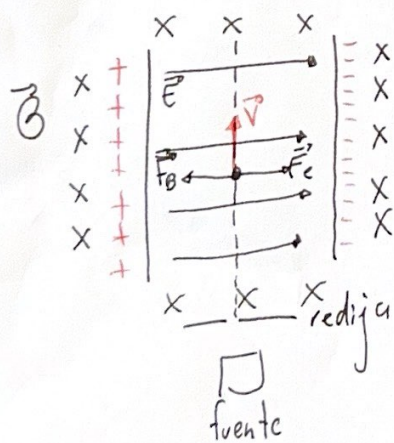 X X X
+ - X
B⃗ X + E⃗ - X
+ V⃗ -
X + - X
+ F_B F_e -
X + - X
X + - X
+
X X X
redija
fuente